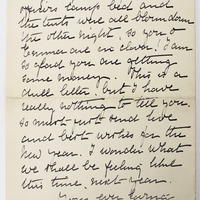 camp bed and
the tents were all blown down
the other night, so you &
are in clover! I am
so glad you are getting
some money. This is a
dull letter, but I have
really nothing to tell you,
so must not send love
and best wishes for the
New Year. I wonder what
we shall be feeling like
this time next year.
Yours ever